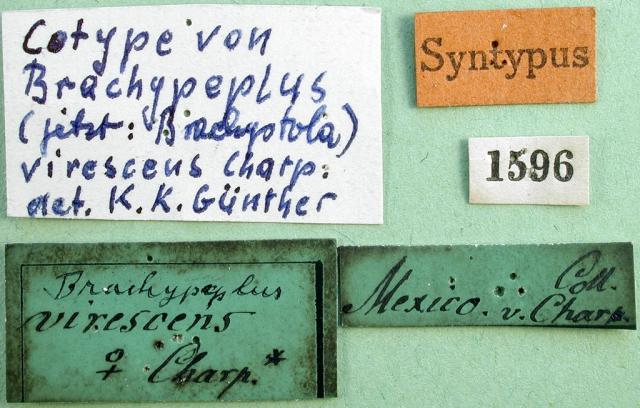 Cotype von
Brachypeplus
(jetzt: Brachystola)
virescens Charp:
det. K. K. Günther
Syntypus
1596
Brachypeplus
virescens
♀ Charp.*
Coll.
Mexico. v. Charp.